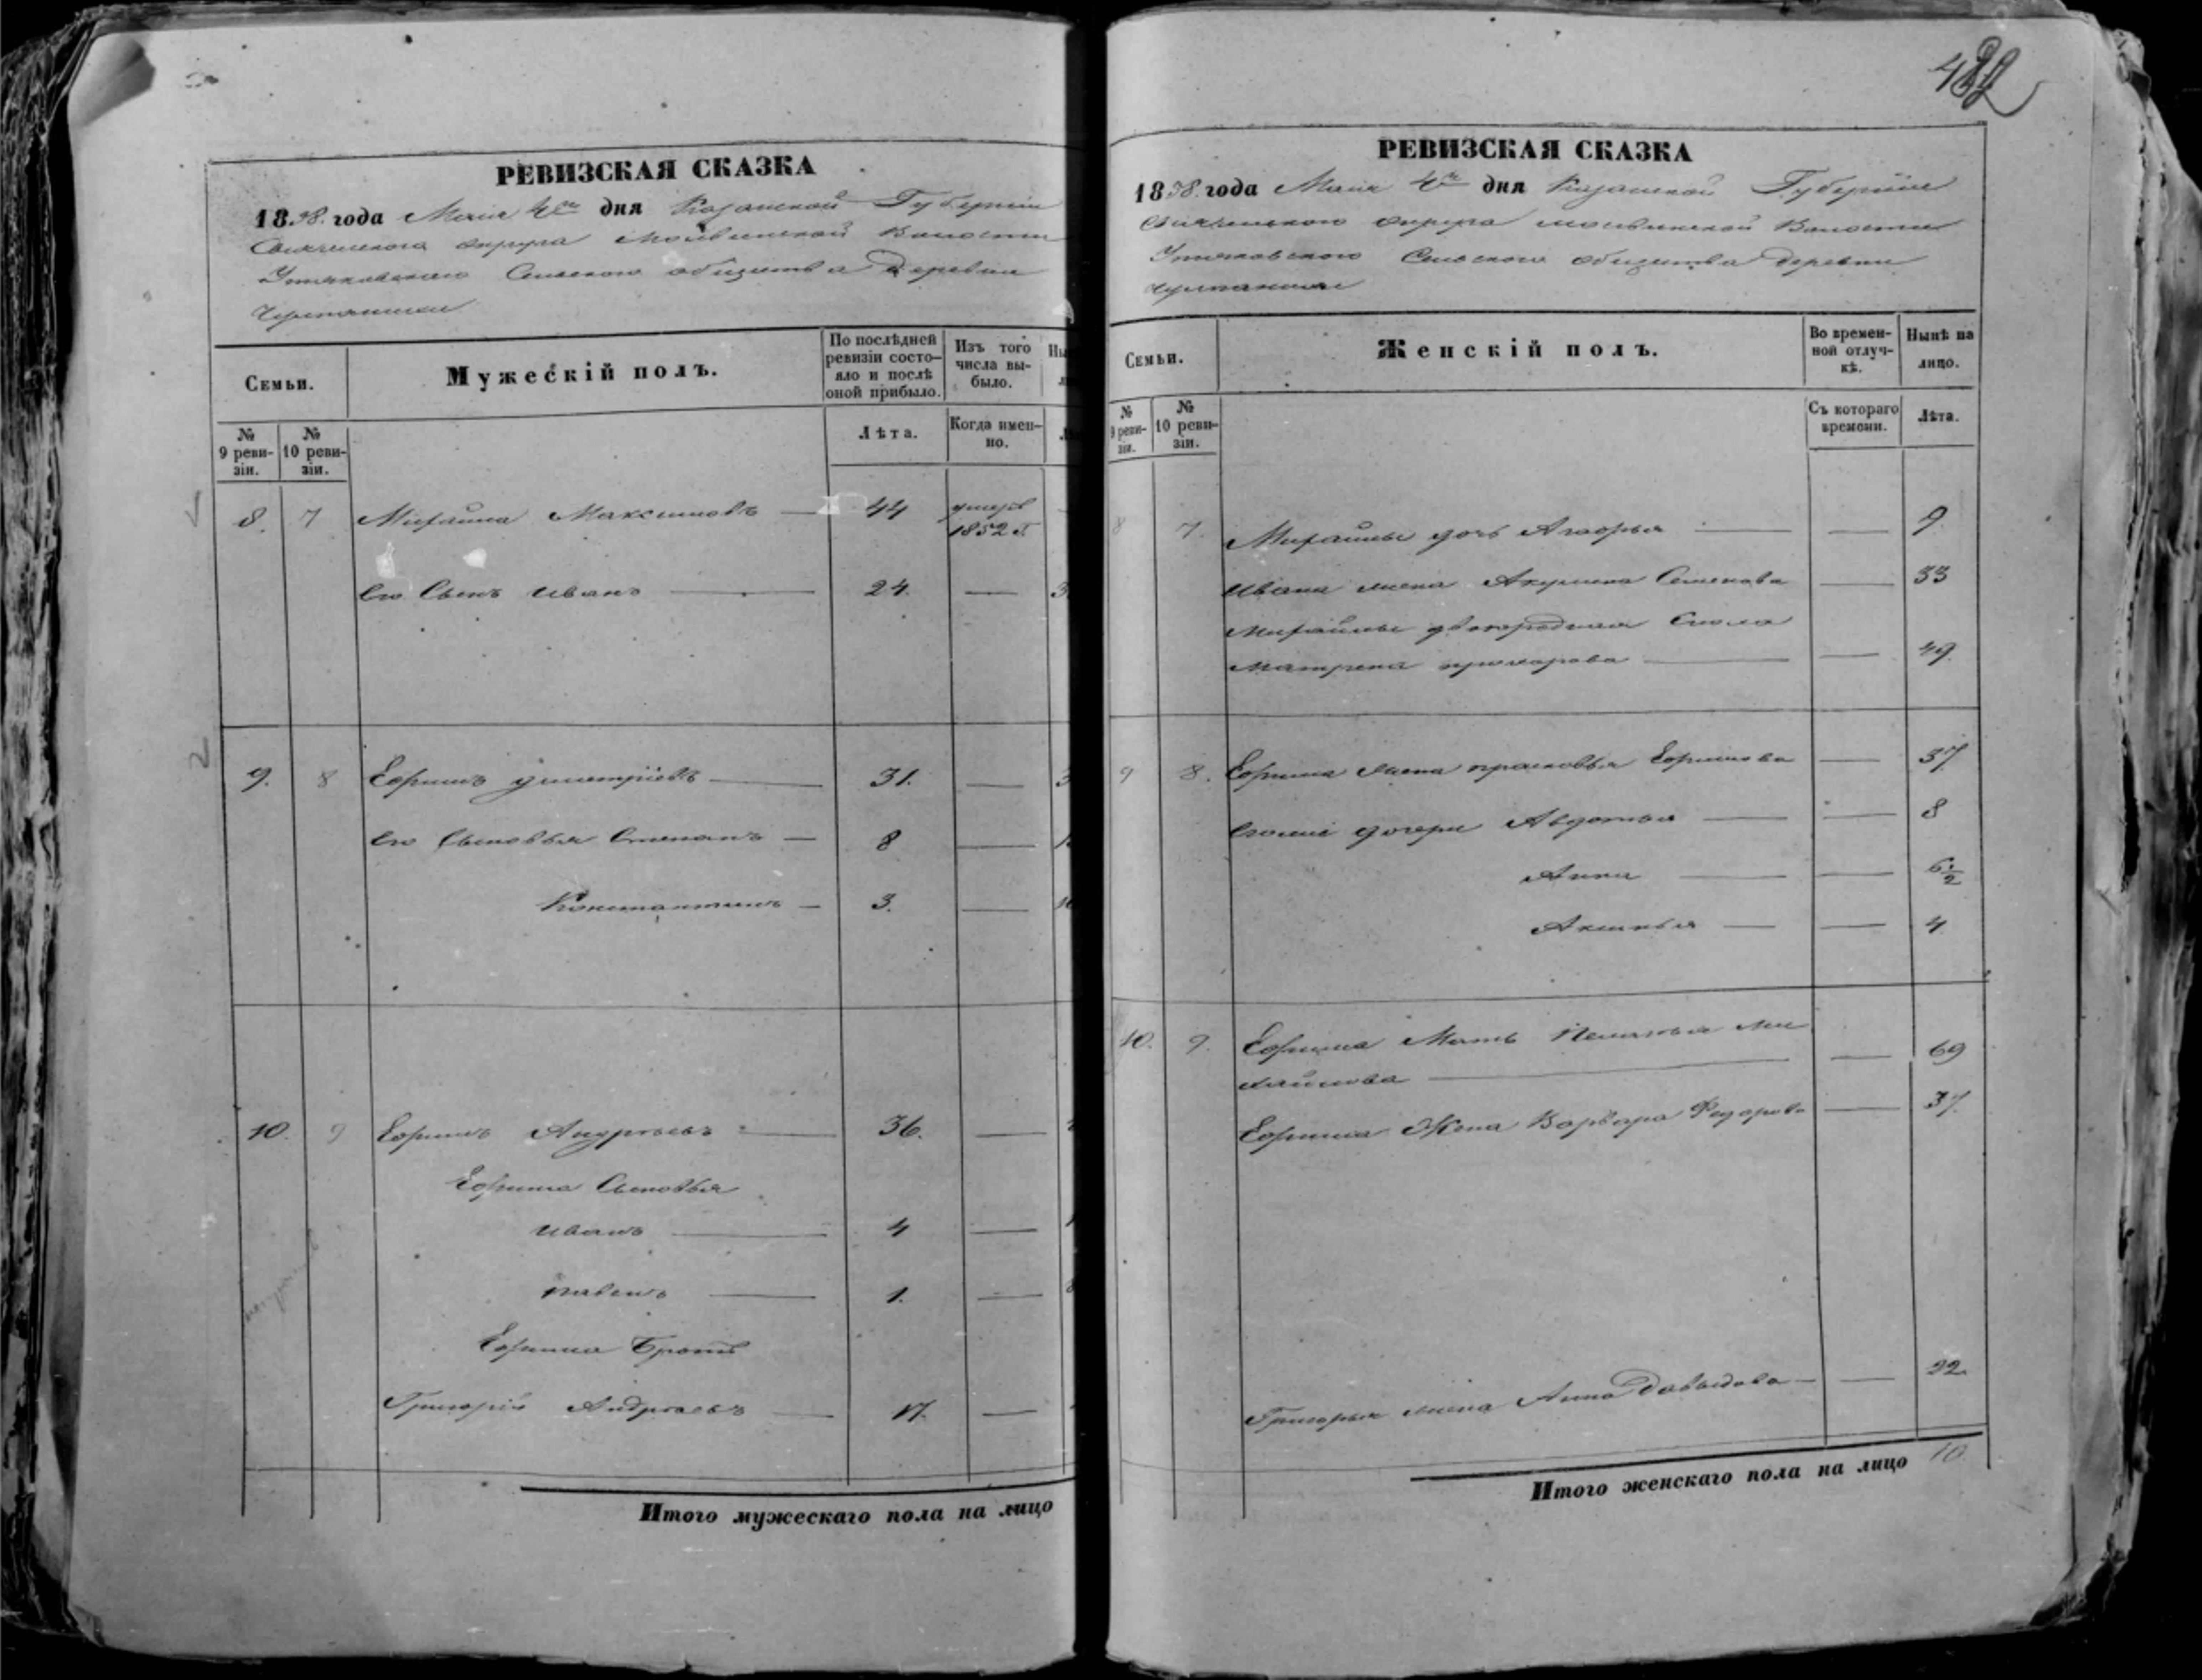 РЕВИЗСКАЯ СКАЗКА
1858 года Маія 4го дня Казанской Губерніи
округа Волости
Сельскаго общества Деревни
Семьи.
Мужескій полъ.
По послѣдней ревизіи состо-
яло и послѣ
оной прибыло.
Изъ того
числа вы-
было.
№
9 реви-
зіи.
№
10 реви-
зіи.
Лѣта.
Когда имен-
но.
8. 7 Михайла Максимовъ — 44 умеръ
1852 г.
Его Сынъ Иванъ — 24. —
9. 8 Ефимъ Дмитріевъ — 31. —
Его Сыновья Степанъ — 8 —
Константинъ — 3. —
10. 9 Ефимъ Андреевъ — 36. —
Ефима Сыновья
Иванъ — 4 —
Павелъ — 1. —
Ефима Братъ
Григорій Андреевъ — 17. —
Итого мужескаго пола на лицо
482
РЕВИЗСКАЯ СКАЗКА
1858 года Маія 4го дня Казанской Губерніи
округа Волости
Сельскаго общества Деревни
Семьи.
Женскій полъ.
Во времен-
ной отлуч-
кѣ.
Нынѣ на
лицо.
№
9 реви-
зіи.
№
10 реви-
зіи.
Съ котораго
времени.
Лѣта.
8 7. Михайлы дочь — — 9
Ивана жена Акулина Семенова — 33
Михайлы двоюродная Сноха
Матрена — — 49
9 8. Ефима жена Прасковья Ефимова — 37
дочери Авдотья — — 8
Анна — — 6½
Аксинья — — 4
10. 9. Ефима Мать Пелагея Ми
хайлова — — 69
Ефима Жена Варвара Федорова — 37
Григорья жена Анна Давыдова — — 22
Итого женскаго пола на лицо 10